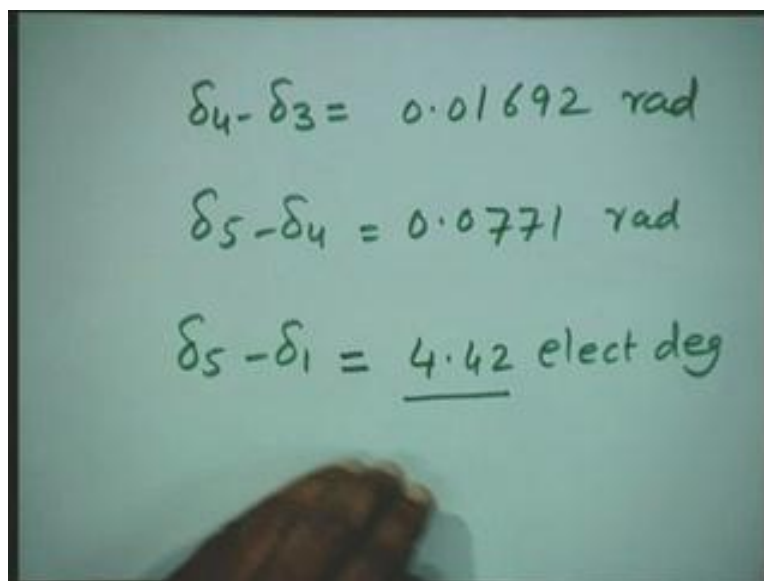 δ4 - δ3 = 0.01692 rad
δ5 - δ4 = 0.0771 rad
δ5 - δ1 = 4.42 elect deg